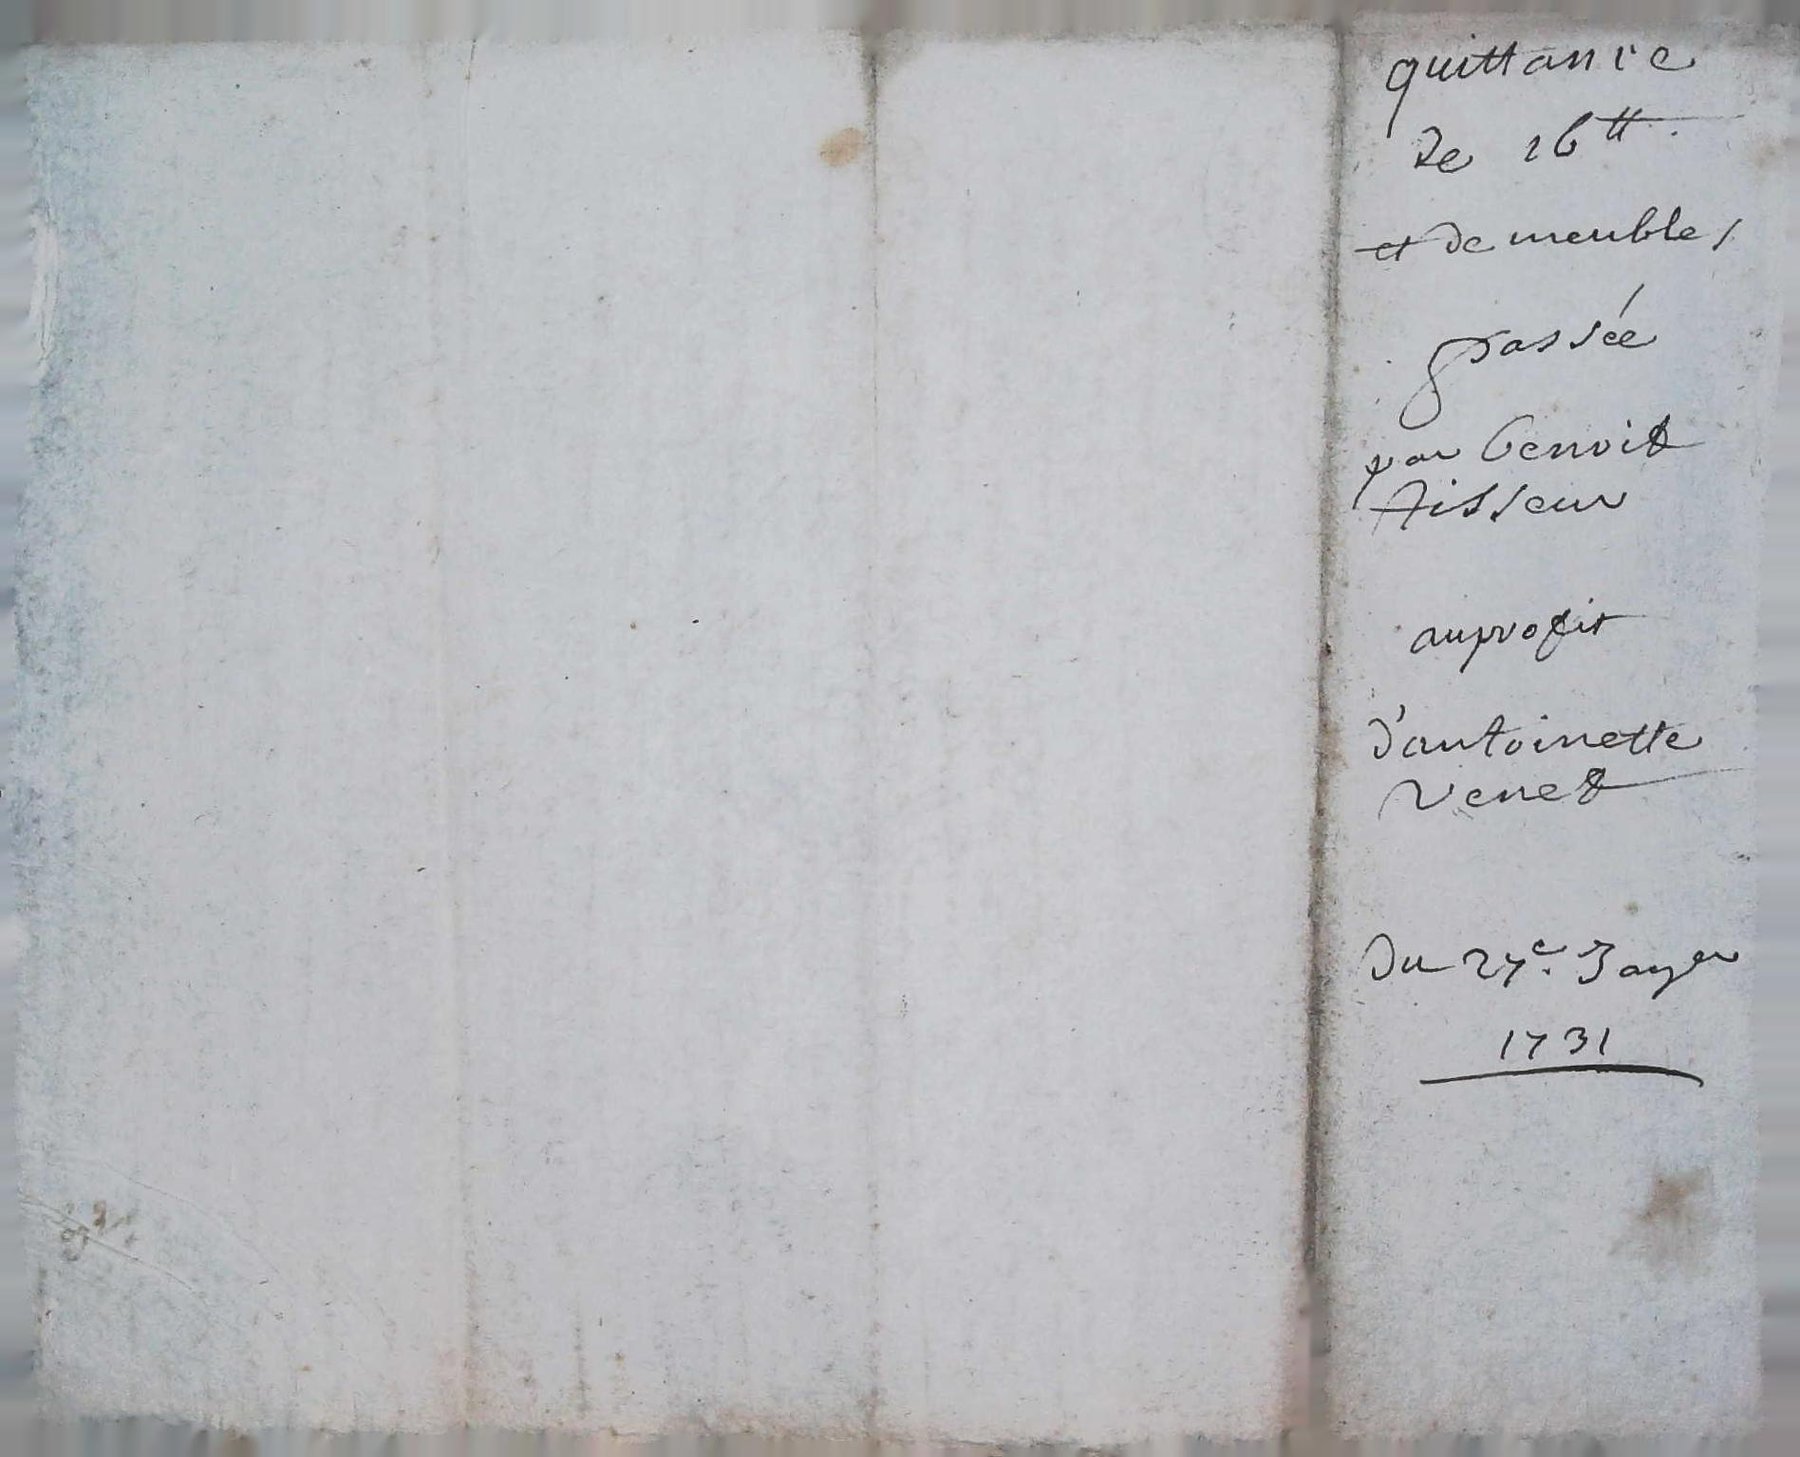 quittance
de 16ᵗᵗ.
et de meubles
passée
par benoit
tisseur
au profit
d'antoinette
venet
Du 27ᵉ. Janver
1731